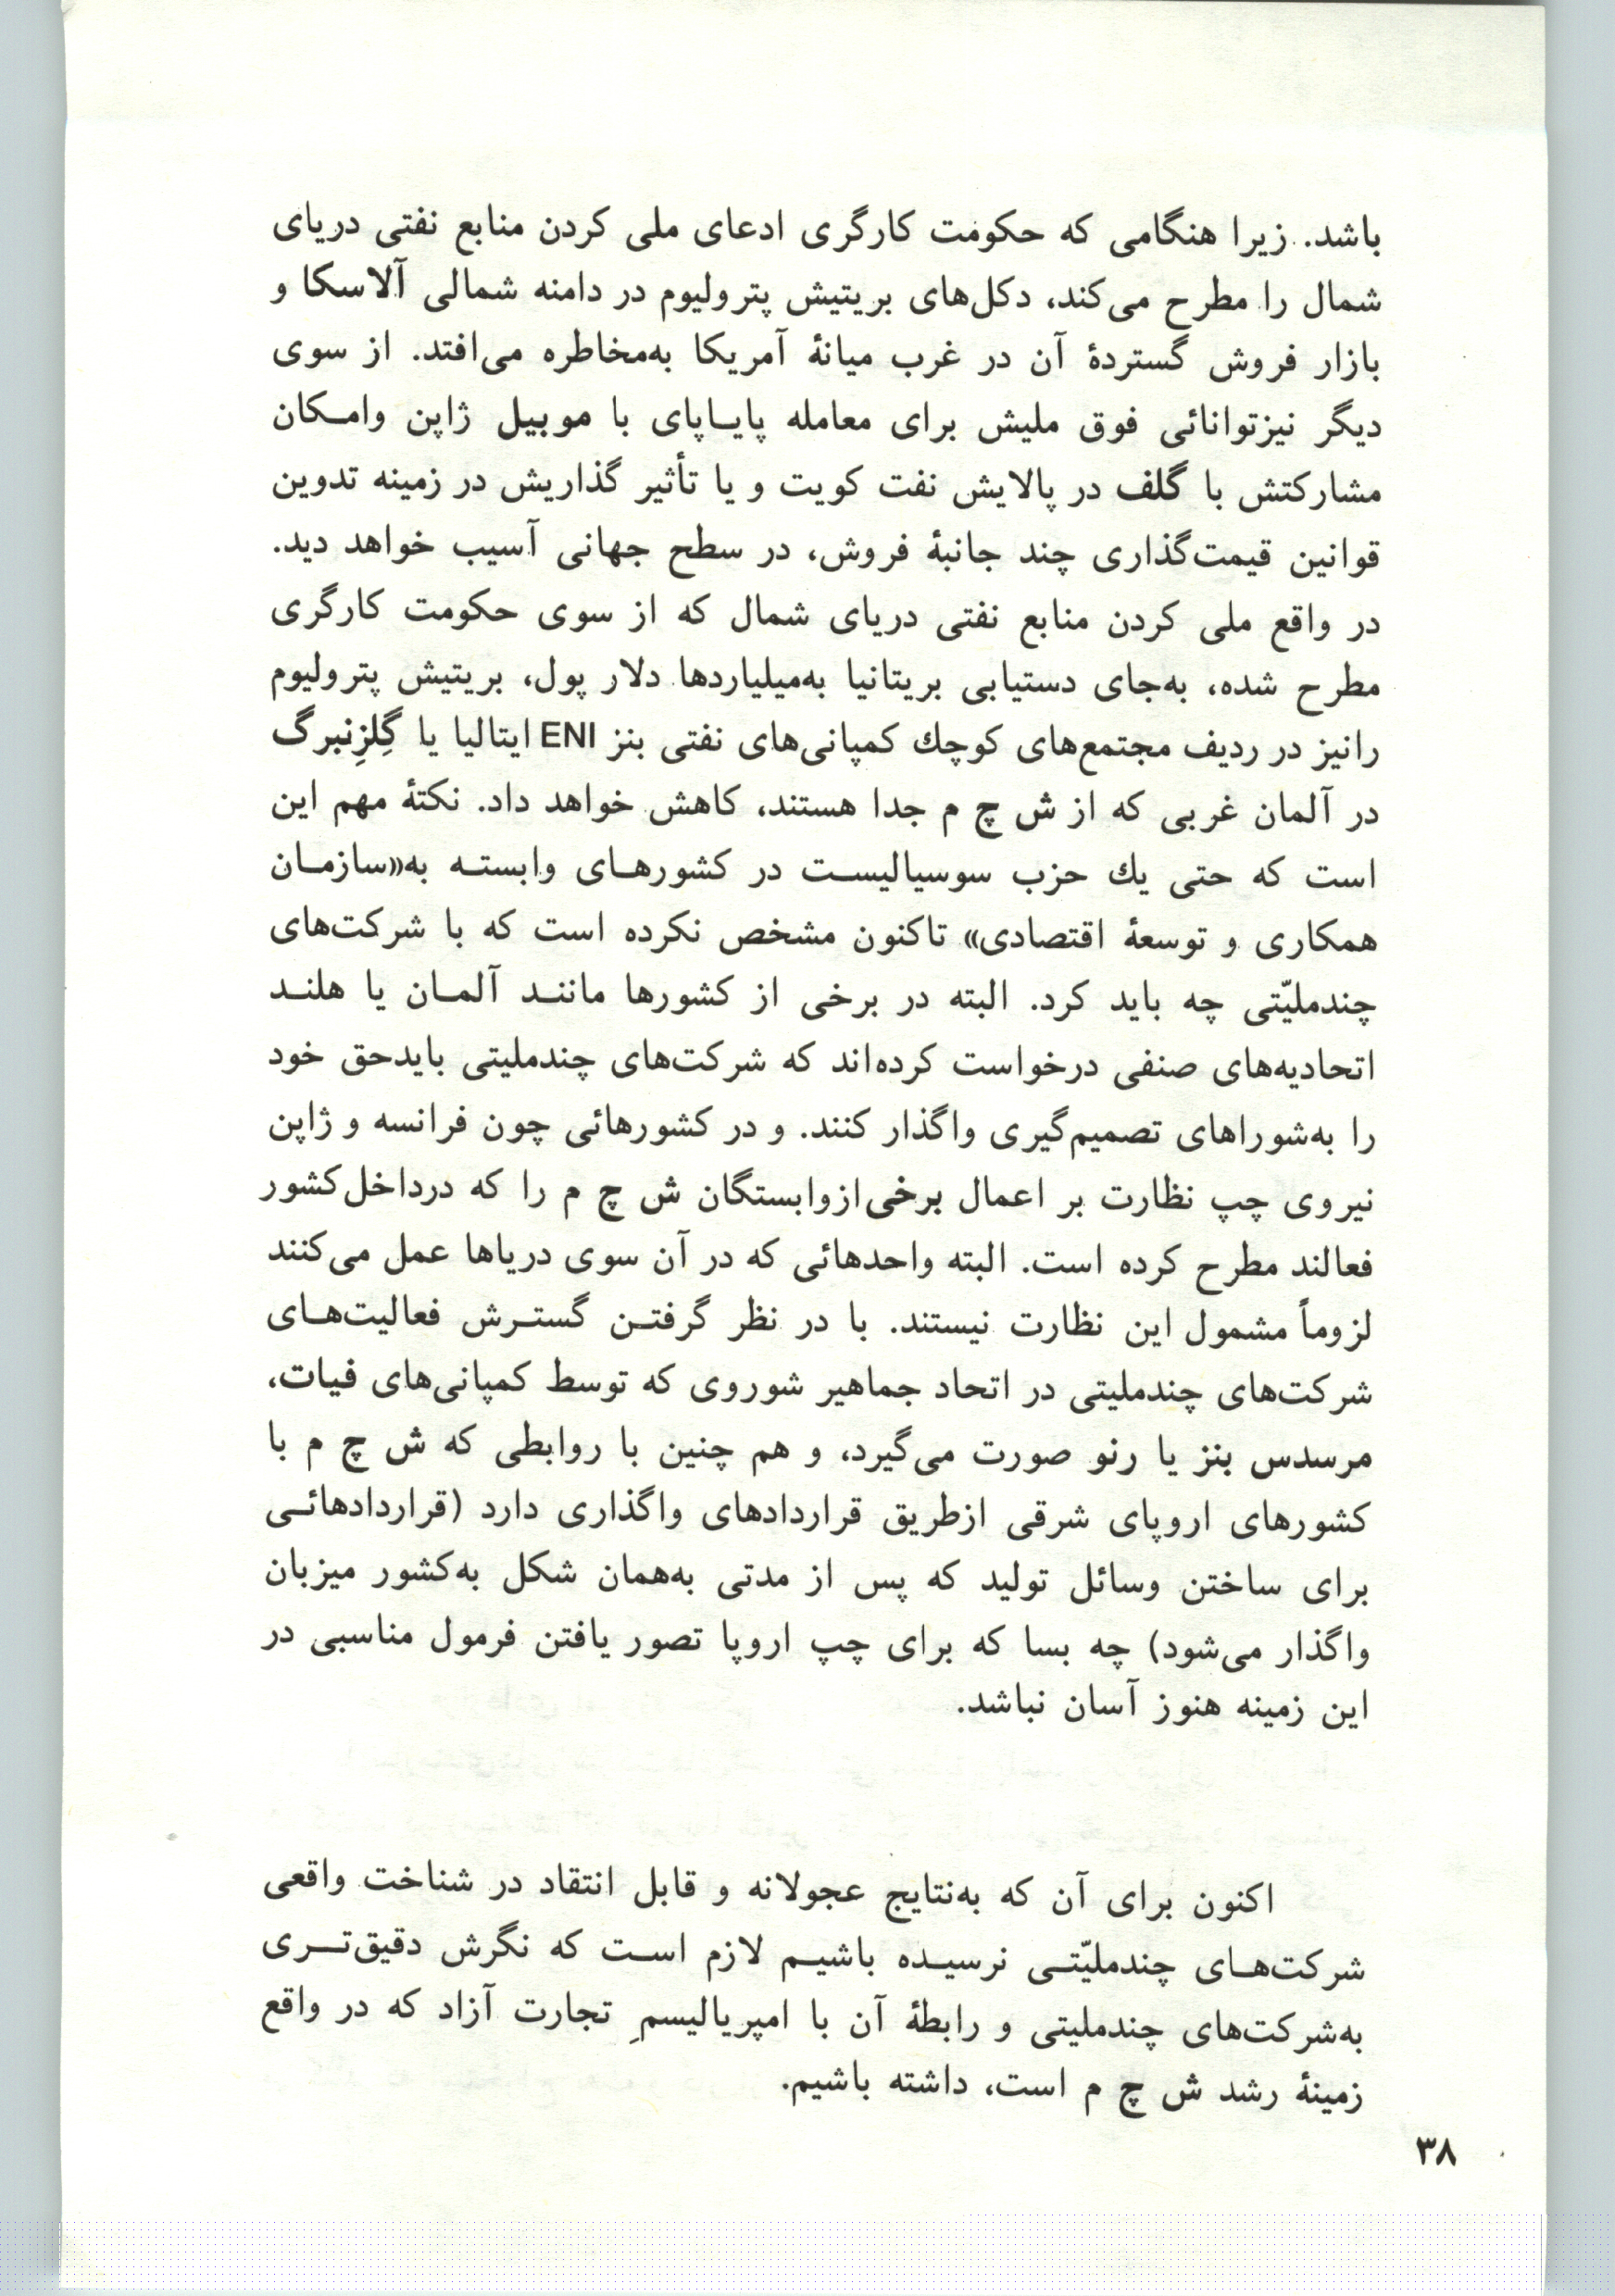 باشد. زیرا هنگامی که حکومت کارگری ادعای ملی کردن منابع نفتی دریای
شمال را مطرح می‌کند، دکل‌های بریتیش پترولیوم در دامنه شمالی آلاسکا و
بازار فروش گستردهٔ آن در غرب میانهٔ آمریکا به‌مخاطره می‌افتد. از سوی
دیگر نیزتوانائی فوق ملیش برای معامله پایـاپای با موبیل ژاپن وامـکان
مشارکتش با گلف در پالایش نفت کویت و یا تأثیر گذاریش در زمینه تدوین
قوانین قیمت‌گذاری چند جانبهٔ فروش، در سطح جهانی آسیب خواهد دید.
در واقع ملی کردن منابع نفتی دریای شمال که از سوی حکومت کارگری
مطرح شده، به‌جای دستیابی بریتانیا به‌میلیاردها دلار پول، بریتیش پترولیوم
رانیز در ردیف مجتمع‌های کوچك کمپانی‌های نفتی بنز ENI ایتالیا یا گِلزِنبرگ
در آلمان غربی که از ش چ م جدا هستند، کاهش خواهد داد. نکتهٔ مهم این
است که حتی یك حزب سوسیالیسـت در کشورهـای وابستـه به«سازمـان
همکاری و توسعهٔ اقتصادی» تاکنون مشخص نکرده است که با شرکت‌های
چندملیّتی چه باید کرد. البته در برخی از کشورها ماننـد آلمـان یا هلنـد
اتحادیه‌های صنفی درخواست کرده‌اند که شرکت‌های چندملیتی بایدحق خود
را به‌شوراهای تصمیم‌گیری واگذار کنند. و در کشورهائی چون فرانسه و ژاپن
نیروی چپ نظارت بر اعمال برخی‌ازوابستگان ش چ م را که درداخل‌کشور
فعالند مطرح کرده است. البته واحدهائی که در آن سوی دریاها عمل می‌کنند
لزوماً مشمول این نظارت نیستند. با در نظر گرفتـن گستـرش فعالیت‌هـای
شرکت‌های چندملیتی در اتحاد جماهیر شوروی که توسط کمپانی‌های فیات،
مرسدس بنز یا رنو صورت می‌گیرد، و هم چنین با روابطی که ش چ م با
کشورهای اروپای شرقی ازطریق قراردادهای واگذاری دارد (قراردادهائـی
برای ساختن وسائل تولید که پس از مدتی به‌همان شکل به‌کشور میزبان
واگذار می‌شود) چه بسا که برای چپ اروپا تصور یافتن فرمول مناسبی در
این زمینه هنوز آسان نباشد.
اکنون برای آن که به‌نتایج عجولانه و قابل انتقاد در شناخت واقعی
شرکت‌هـای چندملیّتـی نرسیـده باشیـم لازم اسـت که نگرش دقیق‌تـری
به‌شرکت‌های چندملیتی و رابطهٔ آن با امپریالیسمِ تجارت آزاد که در واقع
زمینهٔ رشد ش چ م است، داشته باشیم.
۳۸